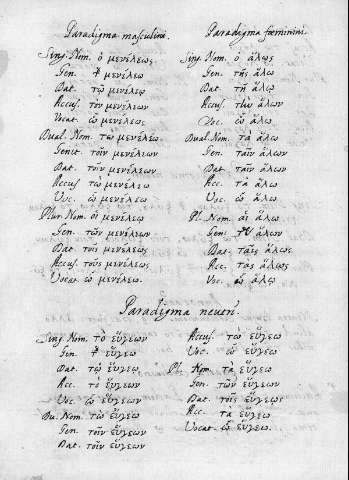 Paradigma masculini.
Sing. Nom. ὁ μενέλεως
Gen. τῦ μενέλεω
Dat. τῷ μενέλεῳ
Accus. τὸν μενέλεων
Vocat. ὦ μενέλεως
Dual. Nom. τὼ μενέλεω
Genit. τοῖν μενέλεῳν
Dat. τοῖν μενέλεῳν
Accus τὼ μενέλεω
Voc. ὦ μενέλεω
Plur. Nom. οἱ μενέλεῳ
Gen. τῶν μενέλεων
Dat. τοῖς μενέλεῳς
Accus. τοὺς μενέλεως
Vocat. ὦ μενέλεῳ.
Paradigma fœminini.
Sing. Nom. ἡ ἅλως
Gen. τῆς ἅλω
Dat. τῇ ἅλῳ
Accus. τὴν ἅλων
Voc. ὦ ἅλως
Dual. Nom. τὰ ἅλω
Gen. ταῖν ἅλῳν
Dat. ταῖν ἅλῳν
Acc. τὰ ἅλω
Voc. ὦ ἅλω
Pl. Nom. αἱ ἅλῳ
Gen. τῶν ἅλων
Dat. ταῖς ἅλῳς
Acc. τὰς ἅλως
Voc. ὦ ἅλῳ
Paradigma neutri
Sing. Nom. τὸ εὔγεων
Gen. τῦ εὔγεω
Dat. τῷ εὔγεῳ
Acc. τὸ εὔγεων
Voc. ὦ εὔγεων
Du. Nom. τὼ εὔγεω
Gen. τοῖν εὔγεῳν
Dat. τοῖν εὔγεῳν
Accus. τὼ εὔγεω
Voc. ὦ εὔγεω
Pl. Nom. τὰ εὔγεω
Gen. τῶν εὔγεων
Dat. τοῖς εὔγεῳς
Acc. τὰ εὔγεω
Vocat. ὦ εὔγεω.